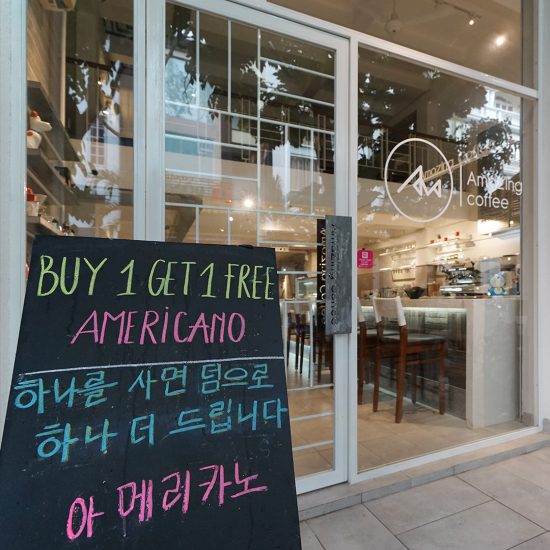 BUY 1 GET 1 FREE
AMERICANO
하나를 사면 덤으로
하나 더 드립니다
아메리카노
Amazing
coffee